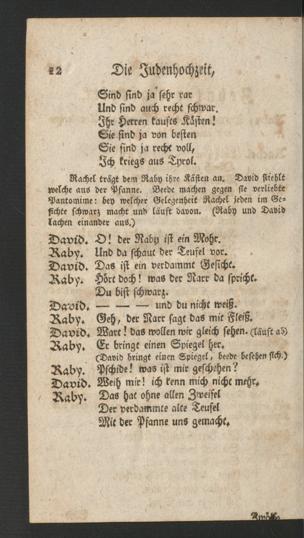 22 Die Judenhochzeit,
Sind sind ja sehr rar
Und sind auch recht schwar.
Ihr Herren kaufts Kästen!
Sie sind ja von besten
Sie sind ja recht voll,
Ich kriegs aus Tyrol.
Rachel trägt dem Raby ihre Kästen an. David stiehlt
welche aus der Pfanne. Beede machen gegen sie verliebte
Pantomime: bey welcher Gelegenheit Rachel jeden im Ge-
sichte schwarz macht und läuft davon. (Raby und David
lachen einander aus.)
David. O! der Raby ist ein Mohr.
Raby. Und da schaut der Teufel vor.
David. Das ist ein verdammt Gesicht.
Raby. Hört doch! was der Narr da spricht.
Du bist schwarz.
David. — — — und du nicht weiß.
Raby. Geh, der Narr sagt das mit Fleiß.
David. Wart! das wollen wir gleich sehen. (läuft ab)
Raby. Er bringt einen Spiegel her.
(David bringt einen Spiegel, beede besehen sich.)
Raby. Pschide! was ist mir geschehen?
David. Weih mir! ich kenn mich nicht mehr.
Raby. Das hat ohne allen Zweifel
Der verdammte alte Teufel
Mit der Pfanne uns gemacht.